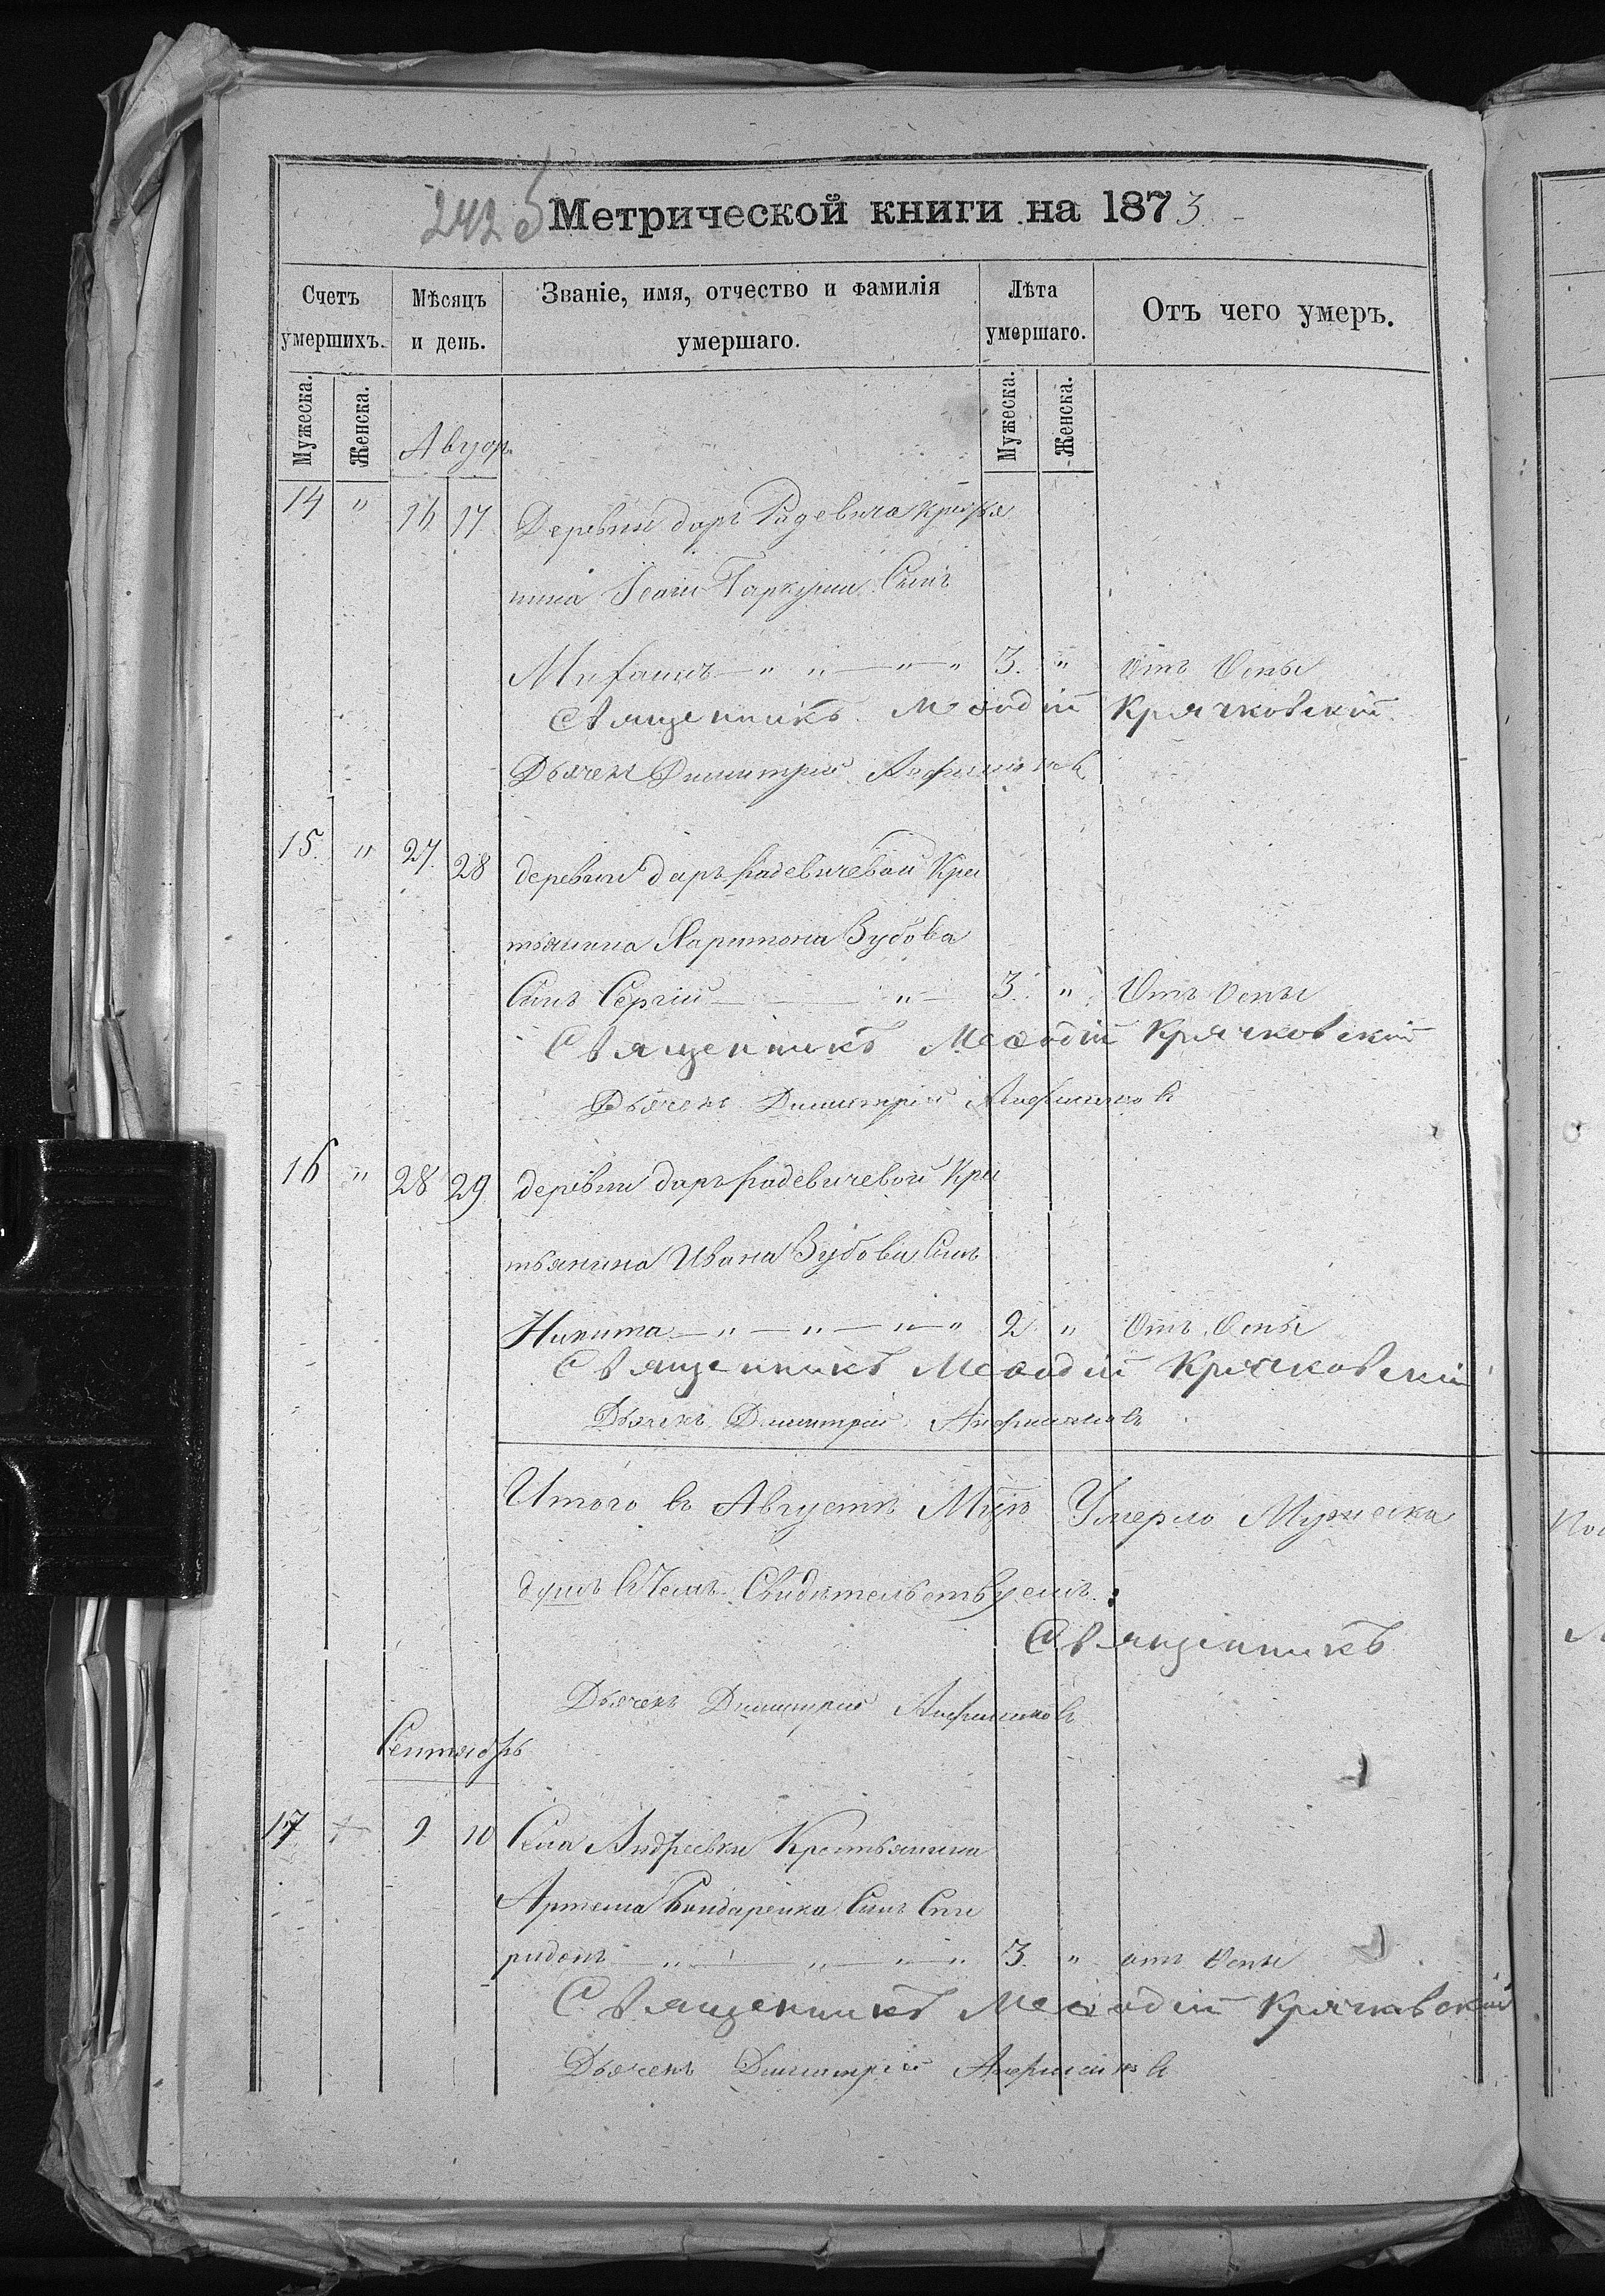 242 б Метрической книги на 1873
Счетъ умершихъ. Мѣсяцъ и день. Званіе, имя, отчество и фамилія умершаго. Лѣта умершаго. Отъ чего умеръ.
Мужеска. Женска. Мужеска. Женска.
14 " 16 17 Деревни даръ Радевича
нина Сынъ
" " " " 3. " Отъ Оспы
Священникъ Меѳодій Крячковскій
Дьячекъ Димитрій
15. " 27. 28 деревни даръ Надевичевой Кре
тьянина Харитона Зубова
Сынъ Сергій " 3. " Отъ Оспы
Священникъ Меѳодій Крячковскій
Дьячекъ Димитрій
16 " 28 29 деревни даръ Надевичевой Кре
тьянина Ивана Зубова Сынъ
Никита " " " " 2 " Отъ Оспы
Священникъ Меѳодій Крячковскій
Дьячекъ Димитрій
Итого въ Августѣ М-цѣ Умерло Мужеска
душъ въ Чемъ Свидѣтельствуемъ:
Священникъ
Дьячекъ Димитрій
Сентябрь
17 9 10 Села Андреевки Крестьянина
Артема Бондаренка Сынъ Спи
ридонъ " " " " 3. " отъ Оспы
Священникъ Меѳодій Крячковскій
Дьячекъ Димитрій